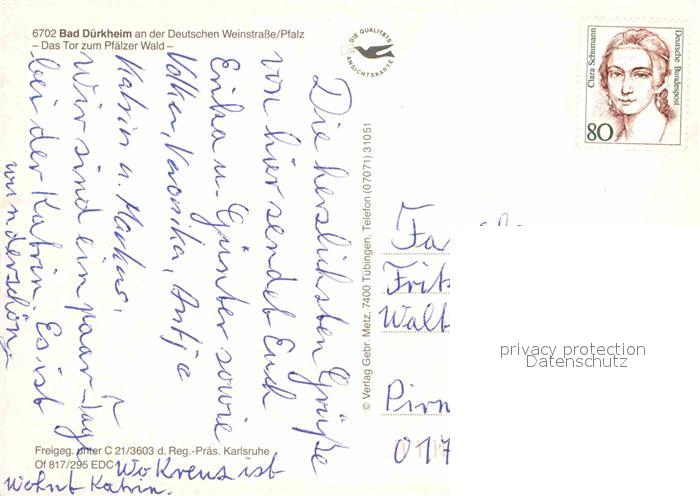 6702 Bad Dürkheim an der Deutschen Weinstraße/Pfalz
– Das Tor zum Pfälzer Wald –
DIE QUALITÄTS
ANSICHTSKARTE
Clara Schumann
Deutsche Bundespost
80
Die herzlichsten Grüße
von hier sendet Euch
Erika u. Günter sowie
Volker, Veronika, Antje
Katrin u. Markus,
Wir sind ein paar Tage
bei der Katrin. Es ist
wunderschön,
Wo Kreuz ist
wohnt Katrin.
© Verlag Gebr. Metz, 7400 Tübingen, Telefon (07071) 31051
Fa
Fritz
Walt
Pirn
017
privacy protection
Datenschutz
Freigeg. unter C 21/3603 d. Reg.-Präs. Karlsruhe
Of 817/295 EDC